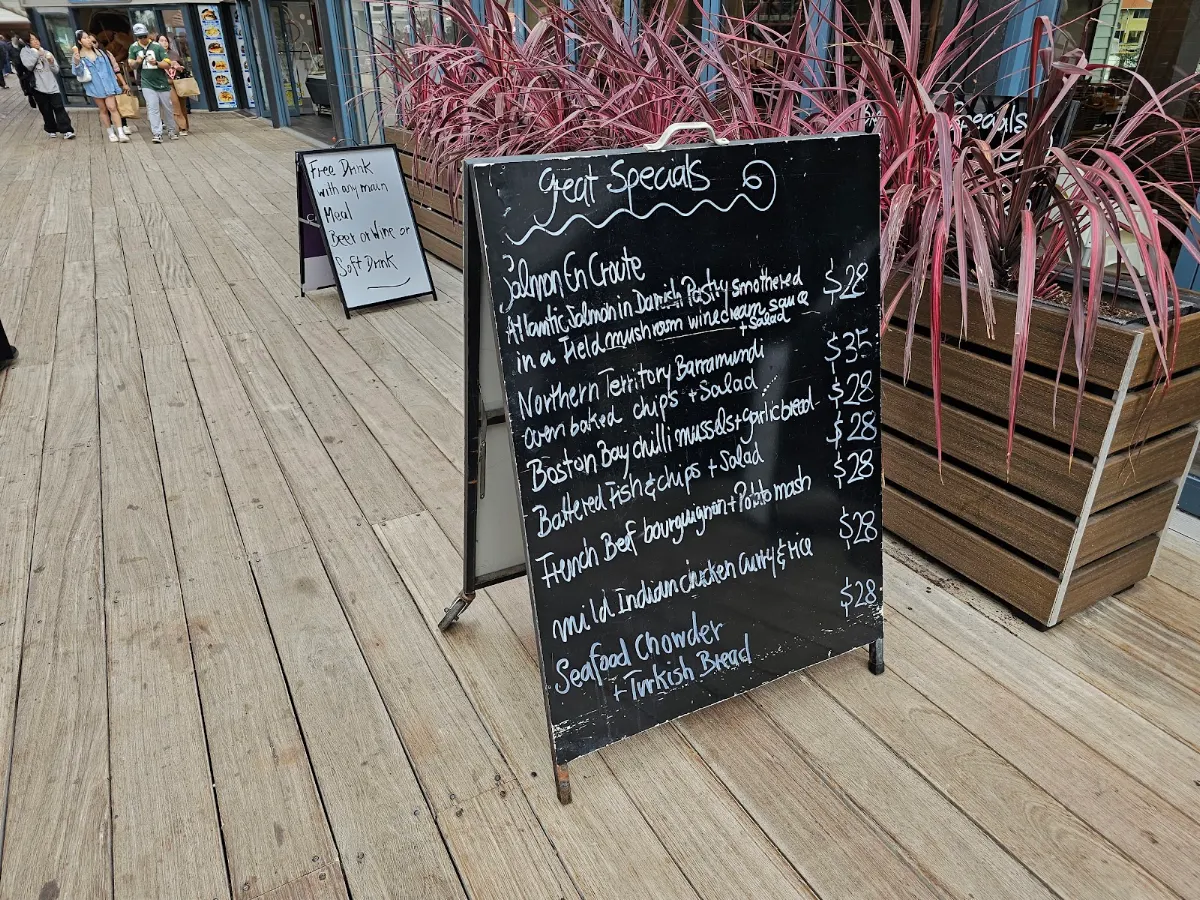 Free Drink
with any main
Meal
Beer or Wine or
Soft Drink
Great Specials
Salmon En Croute
Atlantic Salmon in Danish Pastry smothered $28
in a Field mushroom wine cream sauce
+ Salad
Northern Territory Barramundi $35
oven baked chips + Salad $28
Boston Bay chilli mussels + garlic bread $28
Battered Fish & chips + Salad $28
French Beef bourguignon + Potato mash $28
mild Indian chicken Curry & rice
Seafood Chowder $28
+ Turkish Bread